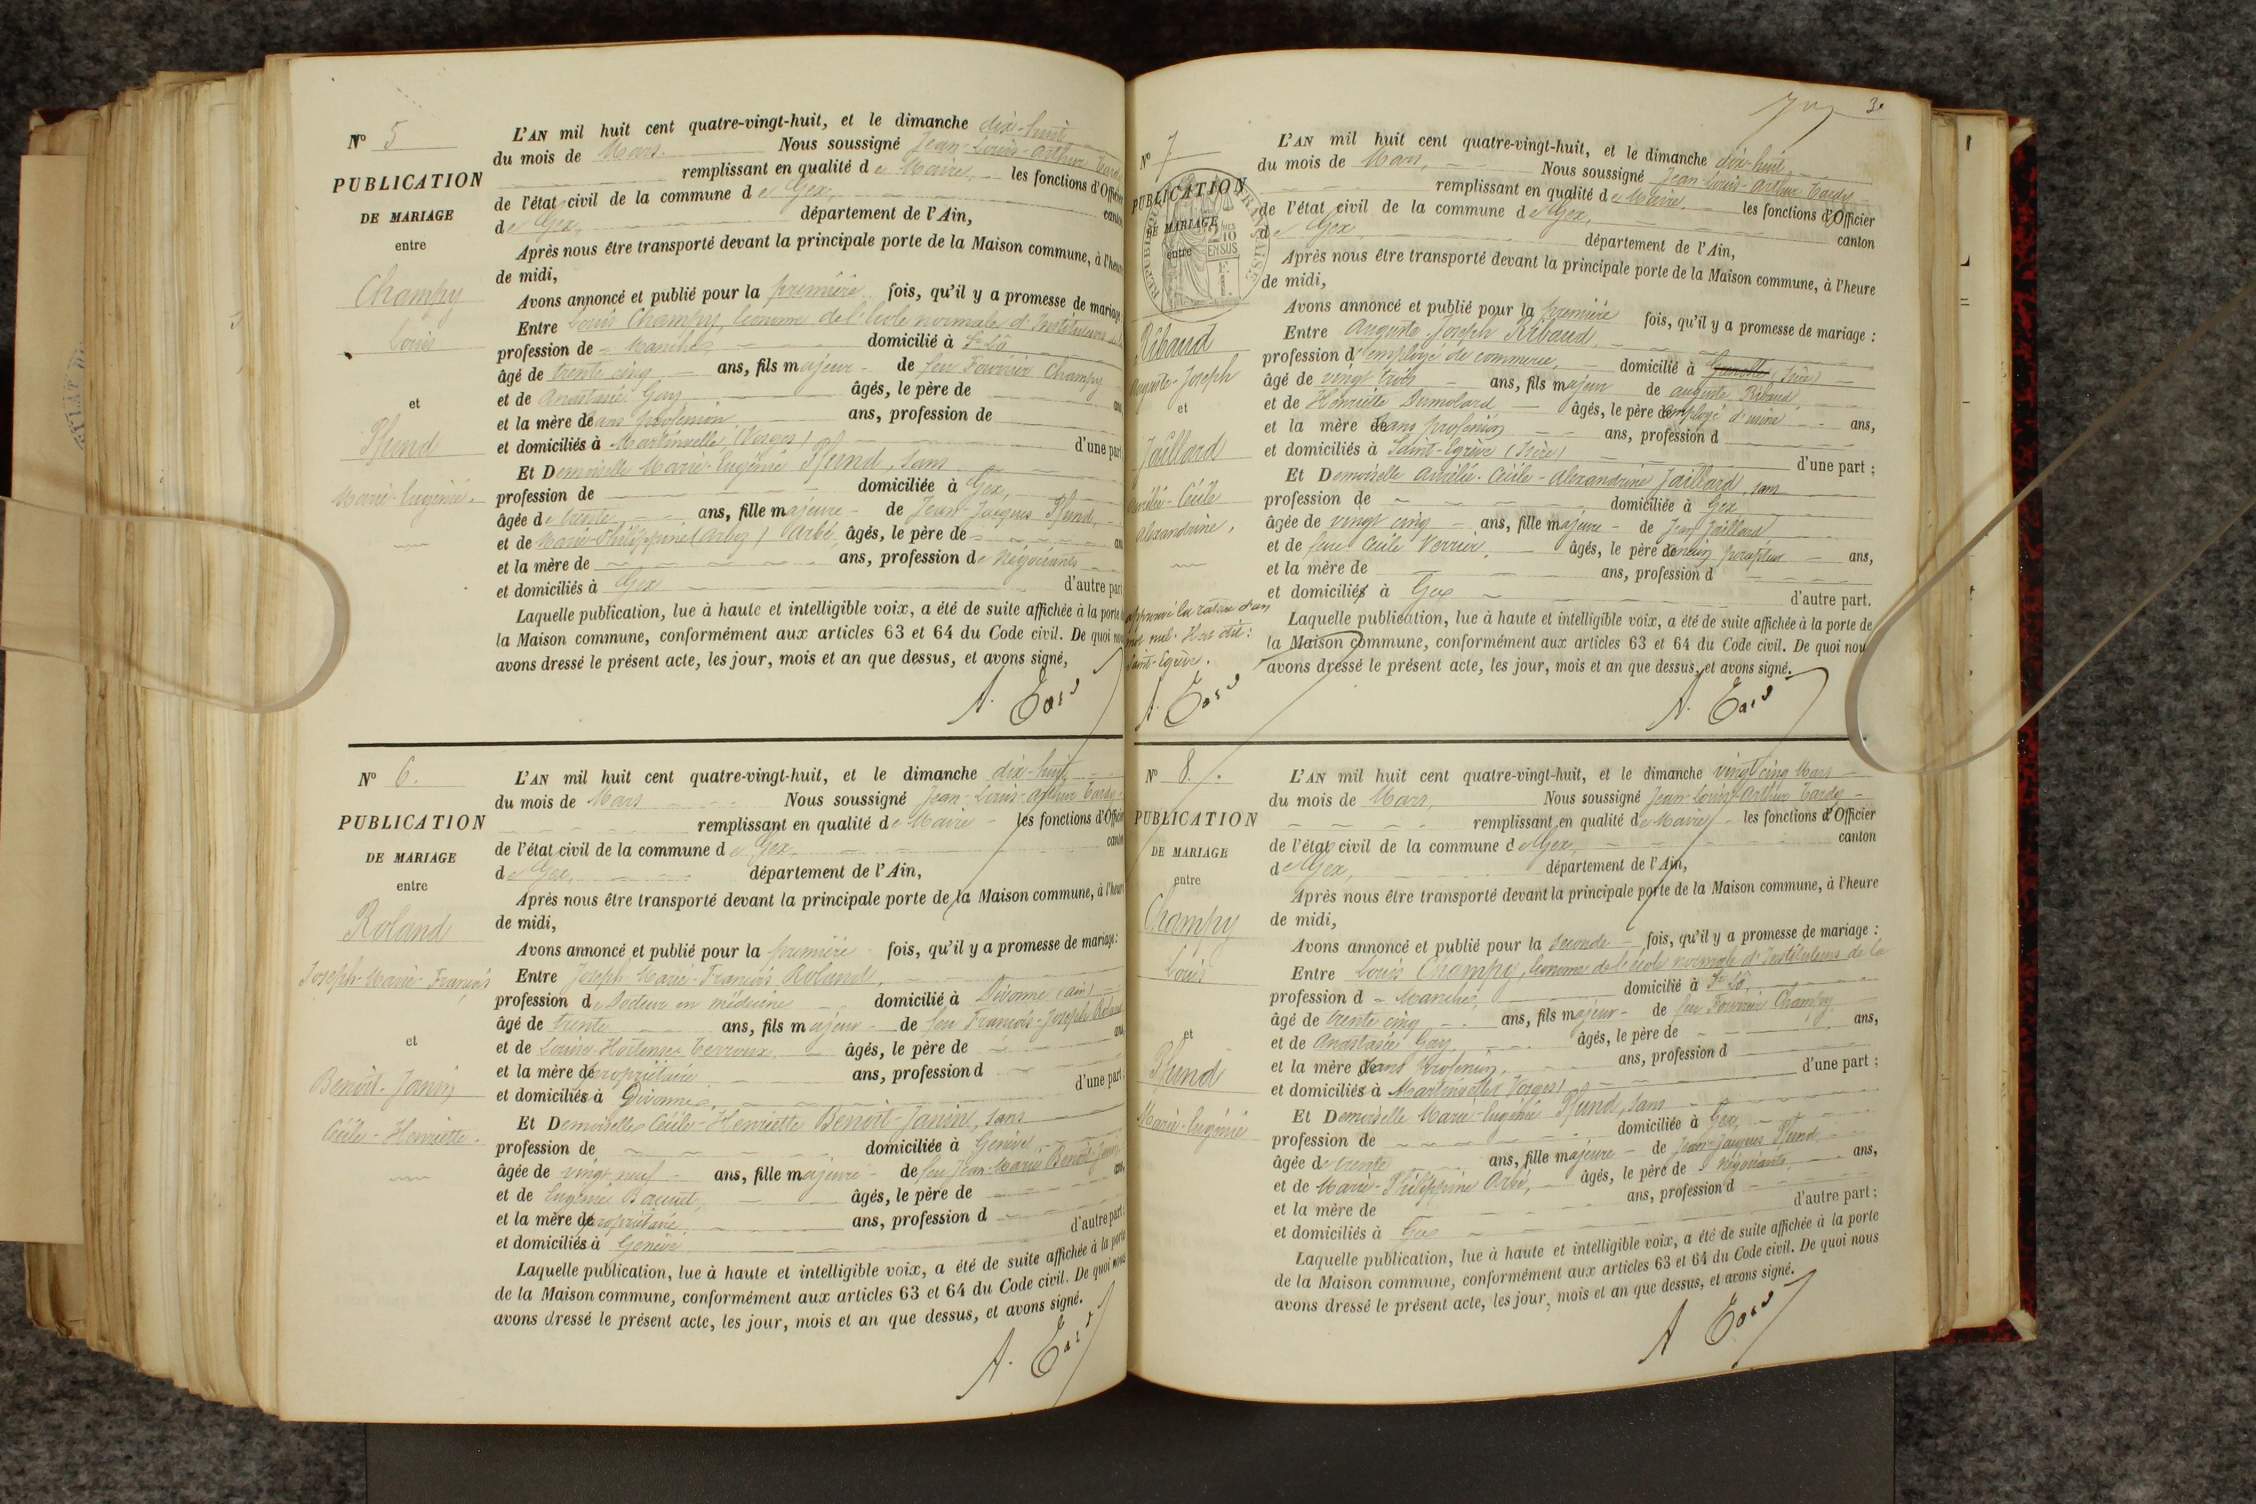 N° 5
PUBLICATION
DE MARIAGE
entre
Champy
Louis
et
Pfund
Marie-Eugénie
L'AN mil huit cent quatre-vingt-huit, et le dimanche dix-huit
du mois de Mars. Nous soussigné Jean-Louis-Arthur Tardy
remplissant en qualité de Maire, les fonctions d'Officier
de l'état civil de la commune de Gex, canton
de Gex, département de l'Ain,
Après nous être transporté devant la principale porte de la Maison commune, à l'heure
de midi,
Avons annoncé et publié pour la première fois, qu'il y a promesse de mariage
Entre Louis Champy, Econome de l'école normale d'Instituteurs de la
profession de Manche, domicilié à St Lô
âgé de trente cinq ans, fils majeur de feu Fourrier Champy
et de Anastasie Gay, âgés, le père de ans,
et la mère de sans profession ans, profession de
et domiciliés à Martinvelle (Vosges) d'une part
Et Demoiselle Marie-Eugénie Pfund, sans
profession de domiciliée à Gex,
âgée de trente ans, fille majeure de Jean-Jacques Pfund,
et de Marie-Philippine (Arbez) Arbé, âgés, le père de an
et la mère de ans, profession de Négociants
et domiciliés à Gex d'autre part
Laquelle publication, lue à haute et intelligible voix, a été de suite affichée à la porte
la Maison commune, conformément aux articles 63 et 64 du Code civil. De quoi nous
avons dressé le présent acte, les jour, mois et an que dessus, et avons signé,
A. Tardy
N° 6.
PUBLICATION
DE MARIAGE
entre
Roland
Joseph-Marie-François
et
Benoit-Janin
Cécile-Henriette.
L'AN mil huit cent quatre-vingt-huit, et le dimanche dix-huit
du mois de Mars Nous soussigné Jean-Louis-Arthur Tardy
remplissant en qualité de Maire les fonctions d'Officier
de l'état civil de la commune de Gex canton
de Gex, département de l'Ain,
Après nous être transporté devant la principale porte de la Maison commune, à l'heure
de midi,
Avons annoncé et publié pour la première fois, qu'il y a promesse de mariage :
Entre Joseph-Marie-François Roland,
profession de Docteur en médecine domicilié à Divonne (Ain)
âgé de trente ans, fils majeur de feu François-Joseph Roland
et de Louise-Hortense Terroux, âgés, le père de ans,
et la mère de propriétaire ans, profession d
et domiciliés à Divonne, d'une part :
Et Demoiselle Cécile-Henriette Benoit-Janin, sans
profession de domiciliée à Genève
âgée de vingt neuf ans, fille majeure de feu Jean-Marie Benoit-Janin
et de Eugénie âgés, le père de ans,
et la mère de propriétaire ans, profession d
et domiciliés à Genève d'autre part :
Laquelle publication, lue à haute et intelligible voix, a été de suite affichée à la porte
de la Maison commune, conformément aux articles 63 et 64 du Code civil. De quoi nous
avons dressé le présent acte, les jour, mois et an que dessus, et avons signé.
A. Tardy
3.
N° 7
PUBLICATION
DE MARIAGE
entre
Ribaud
Auguste-Joseph
et
Jaillard
Amélie-Cécile
Alexandrine,
Approuvé la rature d'un
mot nul. Hort dit :
Saint-Egrève.
A. Tardy
L'AN mil huit cent quatre-vingt-huit, et le dimanche dix-huit,
du mois de Mars, Nous soussigné Jean-Louis-Arthur Tardy
remplissant en qualité de Maire, les fonctions d'Officier
de l'état civil de la commune de Gex, canton
de Gex département de l'Ain,
Après nous être transporté devant la principale porte de la Maison commune, à l'heure
de midi,
Avons annoncé et publié pour la première fois, qu'il y a promesse de mariage :
Entre Auguste Joseph Ribaud,
profession d'employé de commerce, domicilié à Grenoble (Isère)
âgé de vingt trois ans, fils majeur de Auguste Ribaud
et de Henriette Dumolard âgés, le père de employé d'usine ans,
et la mère de sans profession ans, profession d
et domiciliés à Saint-Egrève (Isère) d'une part ;
Et Demoiselle Amélie-Cécile-Alexandrine Jaillard, sans
profession de domiciliée à Gex
âgée de vingt cinq ans, fille majeure de Jean Jaillard
et de feue Cécile Verrier, âgés, le père de ancien percepteur ans,
et la mère de ans, profession d
et domiciliés à Gex d'autre part.
Laquelle publication, lue à haute et intelligible voix, a été de suite affichée à la porte de
la Maison commune, conformément aux articles 63 et 64 du Code civil. De quoi nou
avons dressé le présent acte, les jour, mois et an que dessus, et avons signé.
A. Tardy
N° 8.
PUBLICATION
DE MARIAGE
entre
Champy
Louis
et
Pfund
Marie-Eugénie
L'AN mil huit cent quatre-vingt-huit, et le dimanche vingt cinq Mars
du mois de Mars, Nous soussigné Jean-Louis-Arthur Tardy
remplissant en qualité de Maire, les fonctions d'Officier
de l'état civil de la commune de Gex, canton
de Gex, département de l'Ain,
Après nous être transporté devant la principale porte de la Maison commune, à l'heure
de midi,
Avons annoncé et publié pour la seconde fois, qu'il y a promesse de mariage :
Entre Louis Champy, Econome de l'école normale d'Instituteurs de la
profession d Manche, domicilié à St Lô,
âgé de trente cinq ans, fils majeur de feu Fourrier Champy
et de Anastasie Gay, âgés, le père de ans,
et la mère de sans profession, ans, profession d
et domiciliés à Martinvelle (Vosges) d'une part ;
Et Demoiselle Marie-Eugénie Pfund, sans
profession de domiciliée à Gex,
âgée de trente ans, fille majeure de Jean-Jacques Pfund,
et de Marie-Philippine Arbé, âgés, le père de Négociants ans,
et la mère de ans, profession d
et domiciliés à Gex d'autre part ;
Laquelle publication, lue à haute et intelligible voix, a été de suite affichée à la porte
de la Maison commune, conformément aux articles 63 et 64 du Code civil. De quoi nous
avons dressé le présent acte, les jour, mois et an que dessus, et avons signé.
A Tardy